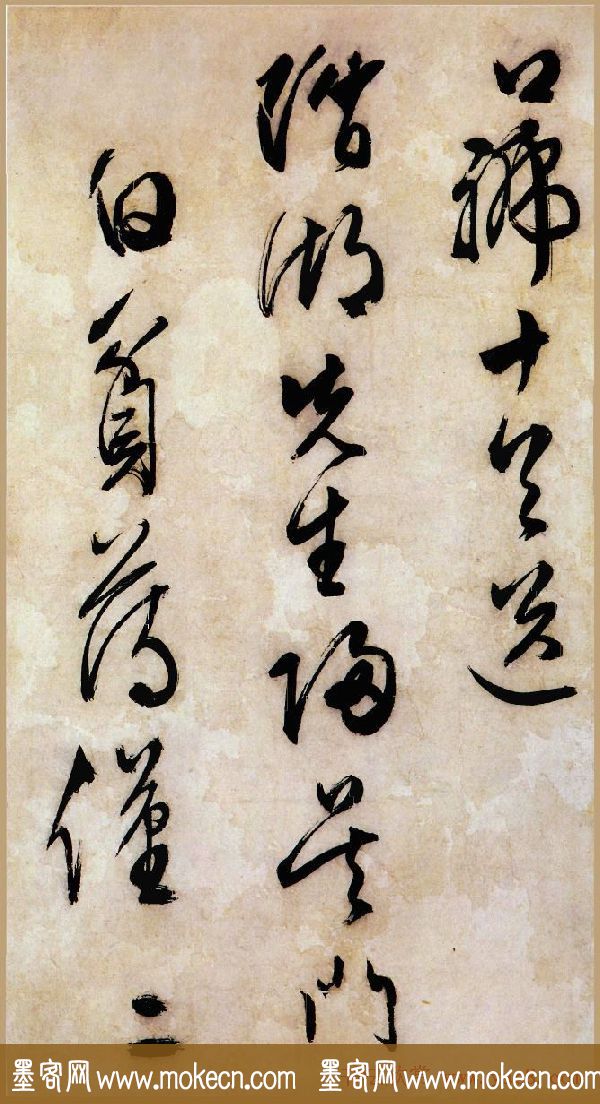 口號十送
階湖先生歸吳門
貧薄僅二
墨客网 www.mokecn.com 墨客网 www.mokecn.com